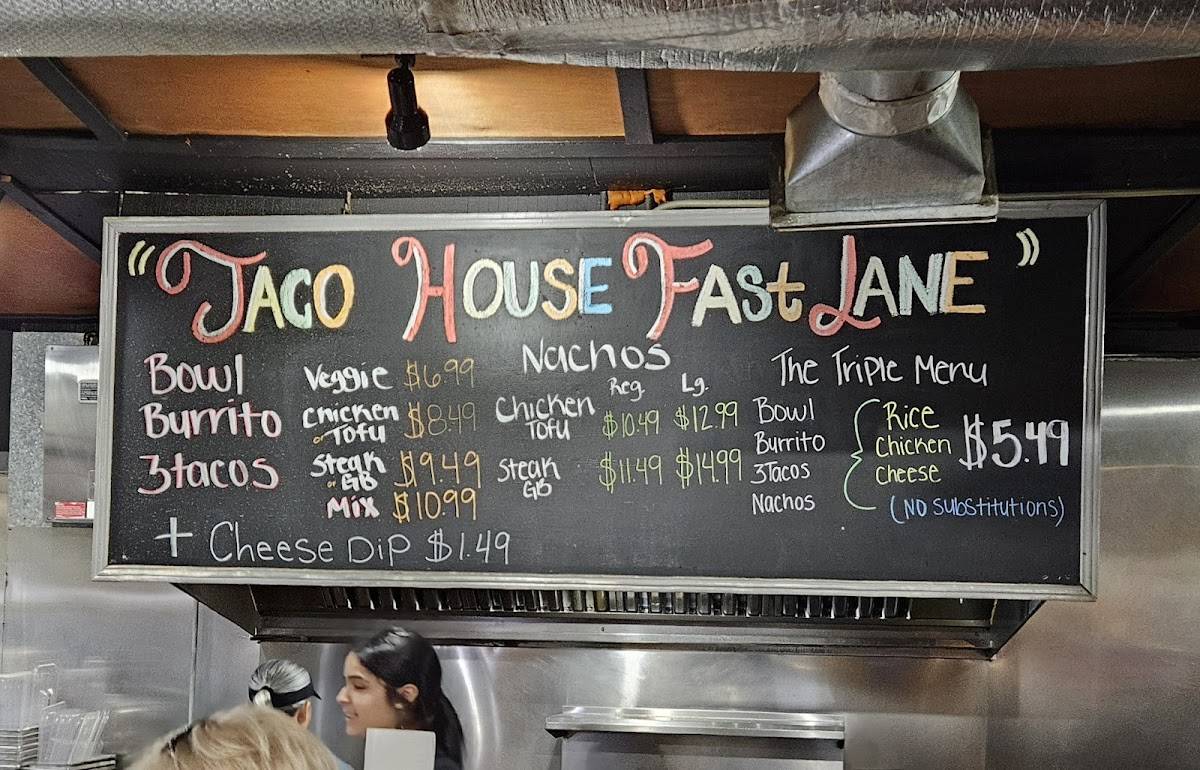 "Taco House Fast Lane"
Bowl
Burrito
3tacos
Veggie $6.99
Chicken or Tofu $8.49
Steak or GB $9.49
Mix $10.99
+ Cheese Dip $1.49
Nachos
Reg. Lg.
Chicken Tofu $10.49 $12.99
Steak GB $11.49 $14.99
The Triple Menu
Bowl
Burrito
3Tacos
Nachos
Rice
Chicken
Cheese
$5.49
(No Substitutions)